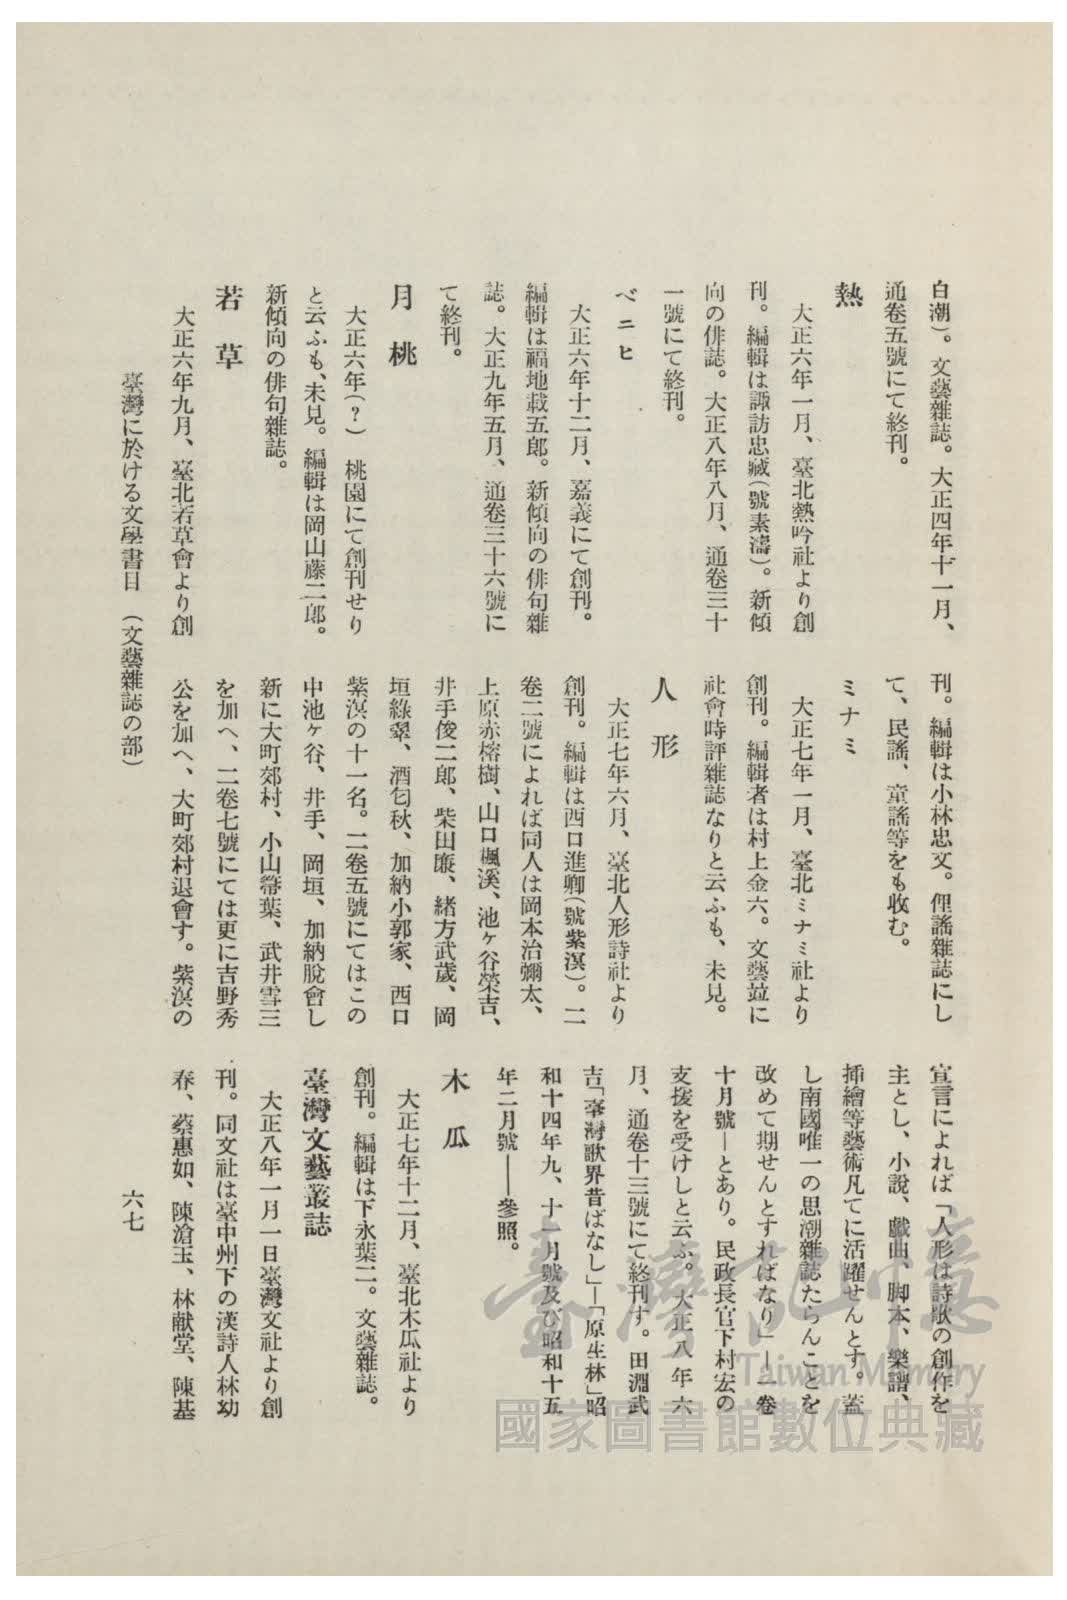 白潮）。文藝雜誌。大正四年十一月、
通卷五號にて終刊。
熱
大正六年一月、臺北熱吟社より創
刊。編輯は諏訪忠藏（號素濤）。新傾
向の俳誌。大正八年八月、通卷三十
一號にて終刊。
べニヒ
大正六年十二月、嘉義にて創刊。
編輯は福地載五郎。新傾向の俳句雜
誌。大正九年五月、通卷三十六號に
て終刊。
月桃
大正六年（?）桃園にて創刊せり
と云ふも、未見。編輯は岡山藤二郎。
新傾向の俳句雜誌。
若草
大正六年九月、臺北若草會より創
刊。編輯は小林忠文。俚謠雜誌にし
て、民謠、童謠等をも收む。
ミナミ
大正七年一月、臺北ミナミ社より
創刊。編輯者は村上金六。文藝竝に
社會時評雜誌なりと云ふも、未見。
人形
大正七年六月、臺北人形詩社より
創刊。編輯は西口進卿（號紫溟）。二
卷二號によれば同人は岡本治彌太、
上原赤榕樹、山口楓溪、池ヶ谷榮吉、
井手俊二郎、柴田廉、緒方武歲、岡
垣綠翠、酒匂秋、加納小郭家、西口
紫溟の十一名。二卷五號にてはこの
中池ヶ谷、井手、岡垣、加納脫會し
新に大町郊村、小山蕚葉、武井雪三
を加へ、二卷七號にては更に吉野秀
公を加へ、大町郊村退會す。紫溟の
宣言によれば「人形は詩歌の創作を
主とし、小說、戲曲、脚本、樂譜、
揷繪等藝術凡てに活躍せんとす。蓋
し南國唯一の思潮雜誌たらんことを
改めて期せんとすればなり」—一卷
十月號—とあり。民政長官下村宏の
支援を受けしと云ふ。大正八年六
月、通卷十三號にて終刊す。田淵武
吉「臺灣歌界昔ばなし」—「原生林」昭
和十四年九、十一月號及び昭和十五
年二月號——參照。
木瓜
大正七年十二月、臺北木瓜社より
創刊。編輯は下永葉二。文藝雜誌。
臺灣文藝叢誌
大正八年一月一日臺灣文社より創
刊。同文社は臺中州下の漢詩人林幼
春、蔡惠如、陳滄玉、林献堂、陳基
臺灣に於ける文學書目（文藝雜誌の部）
六七
臺灣記憶
Taiwan Memory
國家圖書館數位典藏